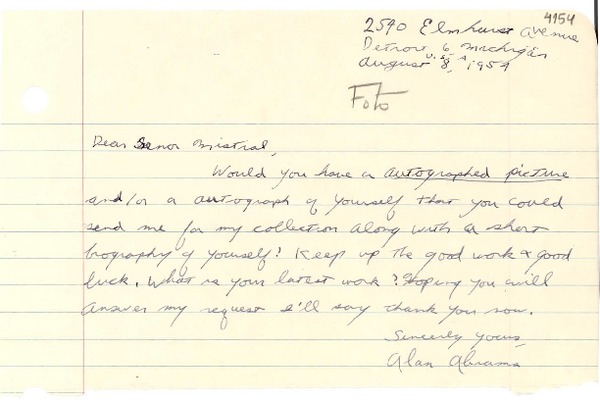 4154
2590 Elmhurst Avenue
Detroit 6 Michigan
U.S.A
August 8, 1954
Foto
Dear Senor Mistral,
Would you have a autographed picture
and/or a autograph of yourself that you could
send me for my collection along with a short
biography of yourself? Keep up the good work & good
luck. What is your latest work? Hoping you will
answer my request I'll say thank you now.
Sincerly yours,
Alan Abrams